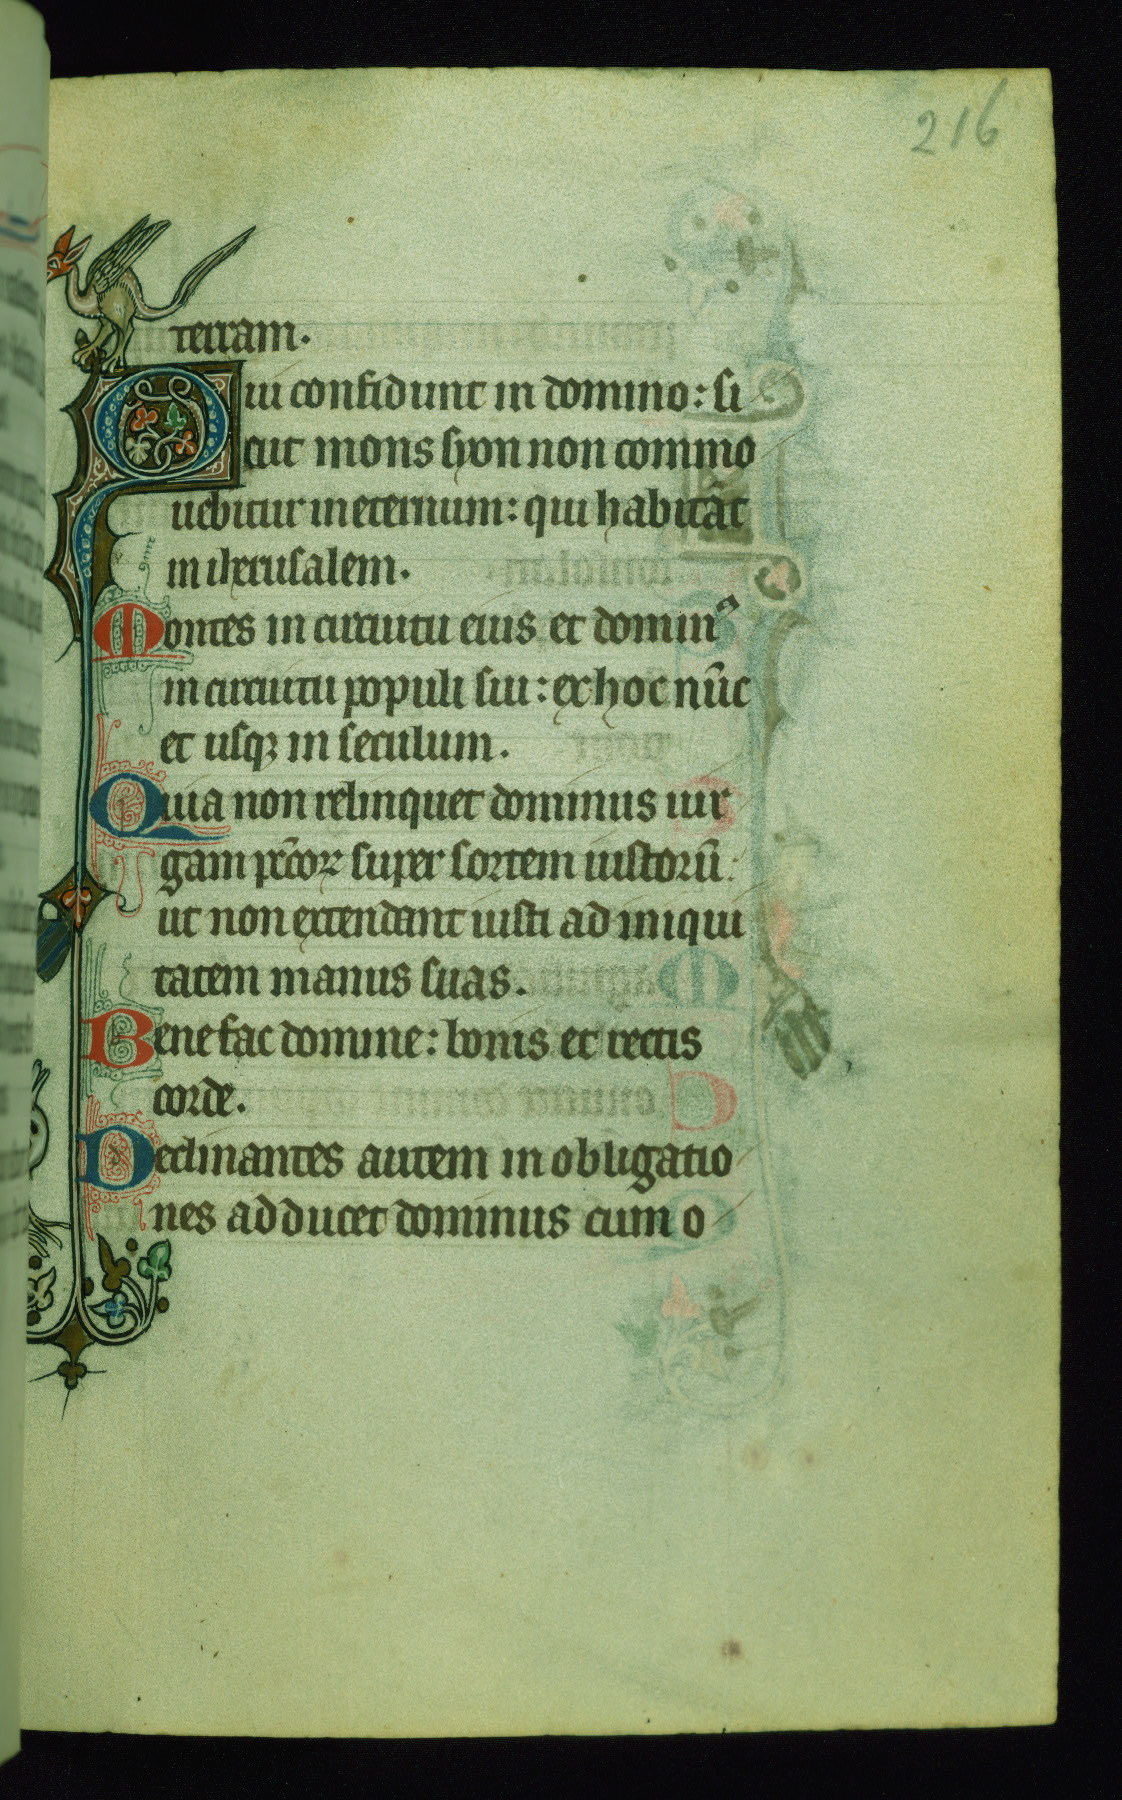 216
terram.
Qui confidunt in domino: si
cut mons syon non commo
uebitur in eternum: qui habitāt
in iherusalem.
Montes in circuitu eius et dominꝰ
in circuitu populi sui: ex hoc nūc
et usqꝫ in seculum.
Quia non relinquet dominus uir
gam pc̄coꝝ super sortem iustorū:
ut non extendant iusti ad iniqui
tatem manus suas.
Benefac domine: bonis et rectis
corde.
Declinantes autem in obligatio
nes adducet dominus cum o